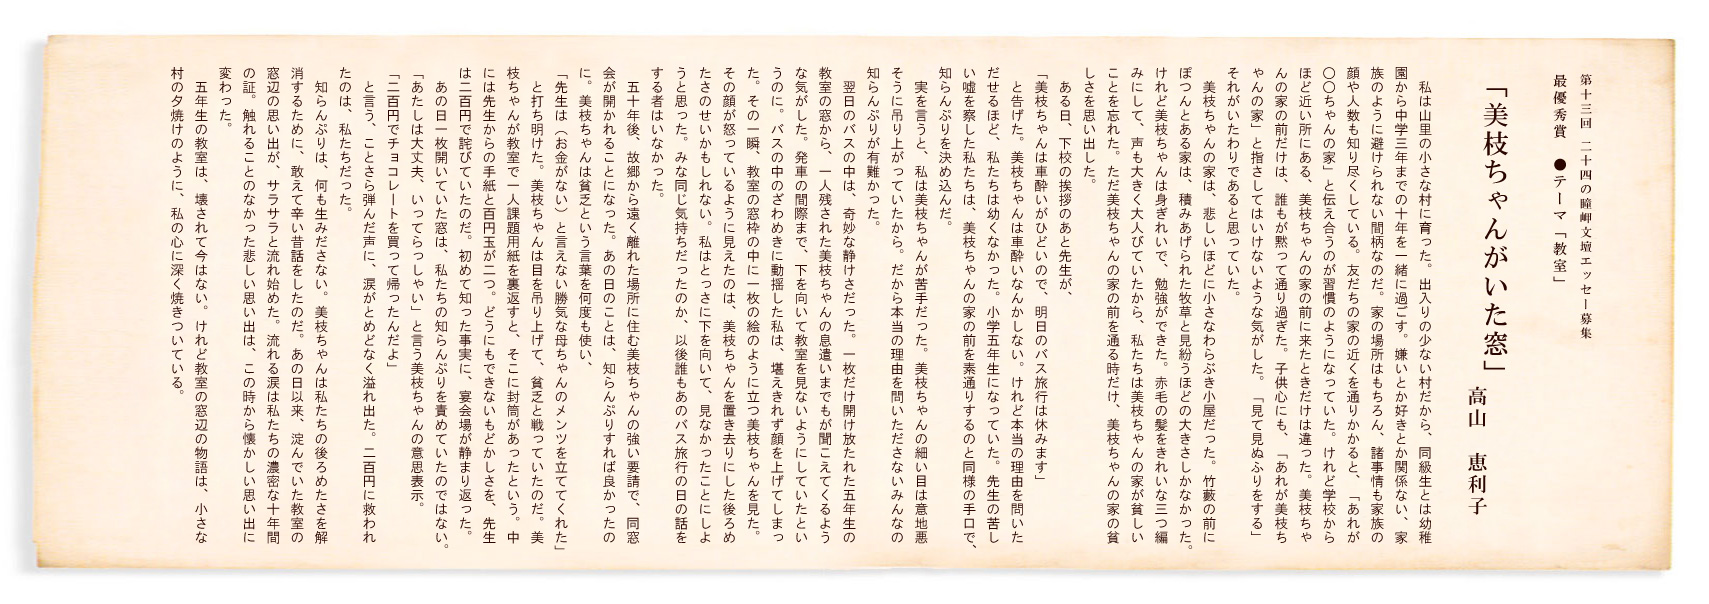 第十三回 二十四の瞳岬文壇エッセー募集
最優秀賞 ●テーマ「教室」
「美枝ちゃんがいた窓」
高山 恵利子
私は山里の小さな村に育った。出入りの少ない村だから、同級生とは幼稚
園から中学三年までの十年を一緒に過ごす。嫌いとか好きとか関係ない、家
族のように避けられない間柄なのだ。家の場所はもちろん、諸事情も家族の
顔や人数も知り尽くしている。友だちの家の近くを通りかかると、「あれが
〇〇ちゃんの家」と伝え合うのが習慣のようになっていた。けれど学校から
ほど近い所にある、美枝ちゃんの家の前に来たときだけは違った。美枝ちゃ
んの家の前だけは、誰もが黙って通り過ぎた。子供心にも、「あれが美枝ち
ゃんの家」と指さしてはいけないような気がした。「見て見ぬふりをする」
それがいたわりであると思っていた。
美枝ちゃんの家は、悲しいほどに小さなわらぶき小屋だった。竹藪の前に
ぽつんとある家は、積みあげられた牧草と見紛うほどの大きさしかなかった。
けれど美枝ちゃんは身ぎれいで、勉強ができた。赤毛の髪をきれいな三つ編
みにして、声も大きく大人びていたから、私たちは美枝ちゃんの家が貧しい
ことを忘れた。ただ美枝ちゃんの家の前を通る時だけ、美枝ちゃんの家の貧
しさを思い出した。
ある日、下校の挨拶のあと先生が、
「美枝ちゃんは車酔いがひどいので、明日のバス旅行は休みます」
と告げた。美枝ちゃんは車酔いなんかしない。けれど本当の理由を問いた
だせるほど、私たちは幼くなかった。小学五年生になっていた。先生の苦し
い嘘を察した私たちは、美枝ちゃんの家の前を素通りするのと同様の手口で、
知らんぷりを決め込んだ。
実を言うと、私は美枝ちゃんが苦手だった。美枝ちゃんの細い目は意地悪
そうに吊り上がっていたから。だから本当の理由を問いたださないみんなの
知らんぷりが有難かった。
翌日のバスの中は、奇妙な静けさだった。一枚だけ開け放たれた五年生の
教室の窓から、一人残された美枝ちゃんの息遣いまでもが聞こえてくるよう
な気がした。発車の間際まで、下を向いて教室を見ないようにしていたとい
うのに。バスの中のざわめきに動揺した私は、堪えきれず顔を上げてしまっ
た。その一瞬、教室の窓枠の中に一枚の絵のように立つ美枝ちゃんを見た。
その顔が怒っているように見えたのは、美枝ちゃんを置き去りにした後ろめ
たさのせいかもしれない。私はとっさに下を向いて、見なかったことにしよ
うと思った。みな同じ気持ちだったのか、以後誰もあのバス旅行の日の話を
する者はいなかった。
五十年後、故郷から遠く離れた場所に住む美枝ちゃんの強い要請で、同窓
会が開かれることになった。あの日のことは、知らんぷりすれば良かったの
に。美枝ちゃんは貧乏という言葉を何度も使い、
「先生は（お金がない）と言えない勝気な母ちゃんのメンツを立ててくれた」
と打ち明けた。美枝ちゃんは目を吊り上げて、貧乏と戦っていたのだ。美
枝ちゃんが教室で一人課題用紙を裏返すと、そこに封筒があったという。中
には先生からの手紙と百円玉が二つ。どうにもできないもどかしさを、先生
は二百円で詫びていたのだ。初めて知った事実に、宴会場が静まり返った。
あの日一枚開いていた窓は、私たちの知らんぷりを責めていたのではない。
「あたしは大丈夫、いってらっしゃい」と言う美枝ちゃんの意思表示。
「二百円でチョコレートを買って帰ったんだよ」
と言う、ことさら弾んだ声に、涙がとめどなく溢れ出た。二百円に救われ
たのは、私たちだった。
知らんぷりは、何も生みださない。美枝ちゃんは私たちの後ろめたさを解
消するために、敢えて辛い昔話をしたのだ。あの日以来、淀んでいた教室の
窓辺の思い出が、サラサラと流れ始めた。流れる涙は私たちの濃密な十年間
の証。触れることのなかった悲しい思い出は、この時から懐かしい思い出に
変わった。
五年生の教室は、壊されて今はない。けれど教室の窓辺の物語は、小さな
村の夕焼けのように、私の心に深く焼きついている。